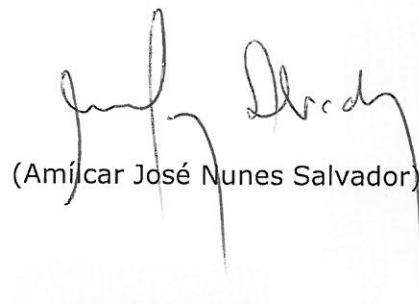 (Amílcar José Nunes Salvador)